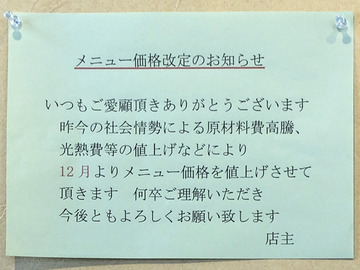 メニュー価格改定のお知らせ
いつもご愛顧頂きありがとうございます
昨今の社会情勢による原材料費高騰、
光熱費等の値上げなどにより
12月よりメニュー価格を値上げさせて
頂きます　何卒ご理解いただき
今後ともよろしくお願い致します
店主